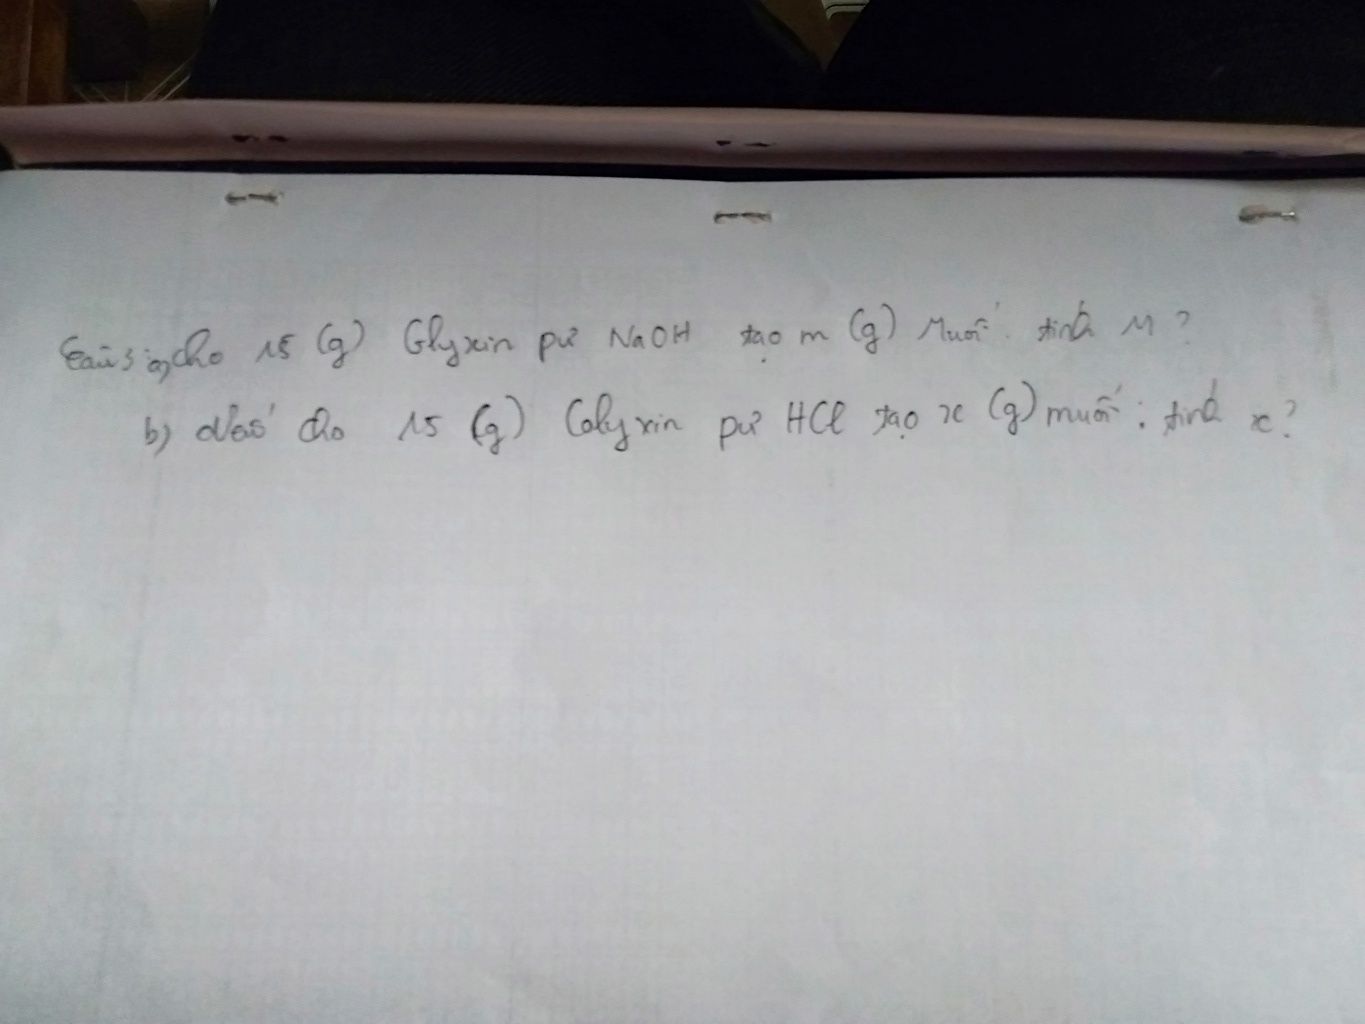 Câu 3: a) Cho 15 (g) Glyxin pứ NaOH tạo m (g) Muối. tính M?
b) Nếu cho 15 (g) Glyxin pứ HCl tạo x (g) muối; tính x?